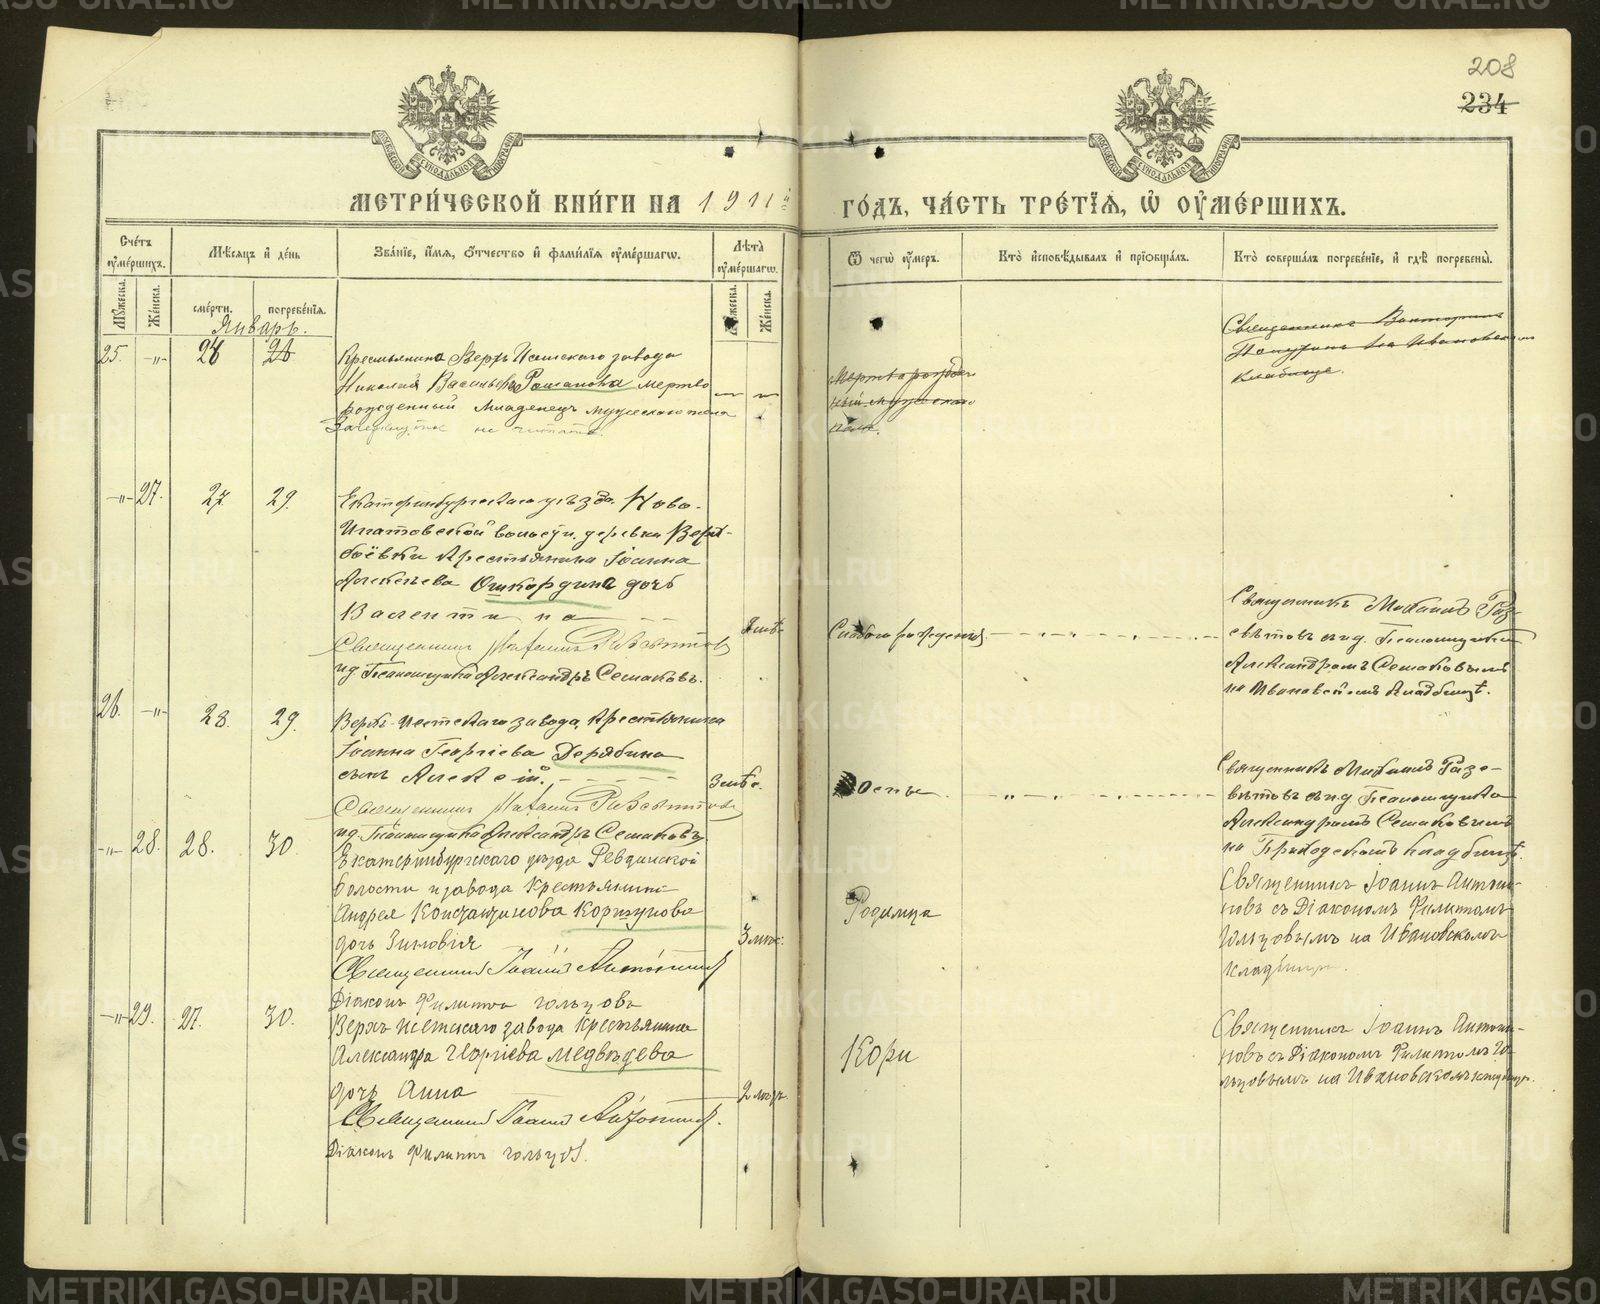 208
234
МЕТРИ́ЧЕСКОЙ КНИ́ГИ НА 1911й
ГО́ДЪ, ЧА́СТЬ ТРЕ́ТІЯ, Ѡ ОУМЕ́РШИХЪ.
Сче́тъ оуме́ршихъ.
Мѣ́сяцъ и де́нь
Зва́ніе, и́мя, о́тчество и фами́лія оуме́ршагѡ.
Лѣ́та оуме́ршагѡ.
Ѿ чегѡ̀ оу́меръ.
Кто̀ исповѣ́дывалъ и пріѡбща́лъ.
Кто̀ соверша́лъ погребе́ніе, и гдѣ̀ погребены̀.
Мꙋ́жеска.
Же́нска.
сме́рти.
погребе́нія.
Мꙋ́жеска.
Же́нска.
Январь.
25. -„- 28 28
Крестьянина Верхъ Исетскаго завода
Николая Васильева Романова мертво
рожденный младенецъ мужескаго пола
Зачеркнутое не читать.
Мертворожден
ный мужескаго
пола.
Священникъ Викторинъ
на Ивановском
кладбище.
-„- 27. 27 29.
Екатеринбургскаго уѣзда. Ново-
Ипатовской волости, деревни Верх-
боёвки крестьянина Іоанна
Алексѣева Ошкордина дочь
Валентина
Священникъ Михаилъ Разсвѣтовъ
ид. Псаломщика Александръ Семаковъ.
Слабаго рожденія
Священникъ Михаилъ Раз-
свѣтовъ съ и.д. Псаломщика
Александромъ Семаковымъ
на Ивановскомъ кладбищѣ.
26. -„- 28. 29.
Верхъ-Исетскаго завода, крестьянина
Іоанна Георгіева Дерябина
сынъ Алексій.
Священникъ Михаилъ Разсвѣтовъ
ид. Псаломщика Александръ Семаковъ.
Оспы
Священникъ Михаилъ Разс-
вѣтовъ съ ид. Псаломщика
Александромъ Семаковымъ
на Приходскомъ кладбищѣ.
-„- 28. 28. 30
Екатеринбургскаго уѣзда Ревдинской
волости и завода крестьянина
Андрея Константинова Коршунова
дочь Зиновія
3 мѣс.
Священникъ Іоаннъ Антониновъ
Діаконъ Филиппъ Гольцовъ
Родимца
Священникъ Іоаннъ Антони-
новъ съ Діакономъ Филиппомъ
Гольцовымъ на Ивановскомъ
кладбищѣ.
-„- 29. 27. 30.
Верхъ Исетскаго завода крестьянина
Александра Георгіева Медвѣдева
дочь Анна
Священникъ Іоаннъ Антониновъ.
Діаконъ Филиппъ Гольцовъ.
Кори
Священникъ Іоаннъ Антони-
новъ съ Діакономъ Филиппомъ Го-
льцовымъ на Ивановскомъ кладбищѣ.
METRIKI.GASO-URAL.RU